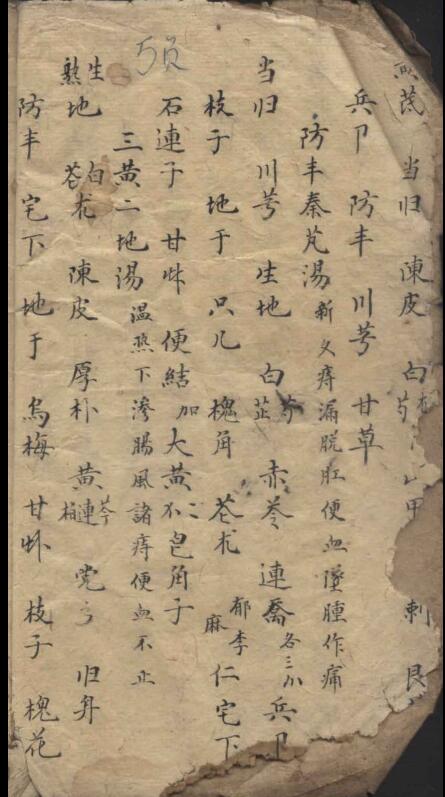 茋 当归 陳皮 白 芍 甲 刺
兵卩 防丰 川芎 甘草
防丰秦艽湯 新久痔漏脱肛便血墜腫作痛
当归 川芎 生地 白芷芍 赤苓 連喬 各三 兵卩
枝子 地于 只几 槐角 苍朮 麻郁李仁 宅下
石連子 甘艸 便結加大黄 皂角子
三黄二地湯 温热下滲腸風諸痔便血不止
生熟地 白苍朮 陳皮 厚朴 黄芩連柏 党 归身
防丰 宅下 地于 烏梅 甘艸 枝子 槐花